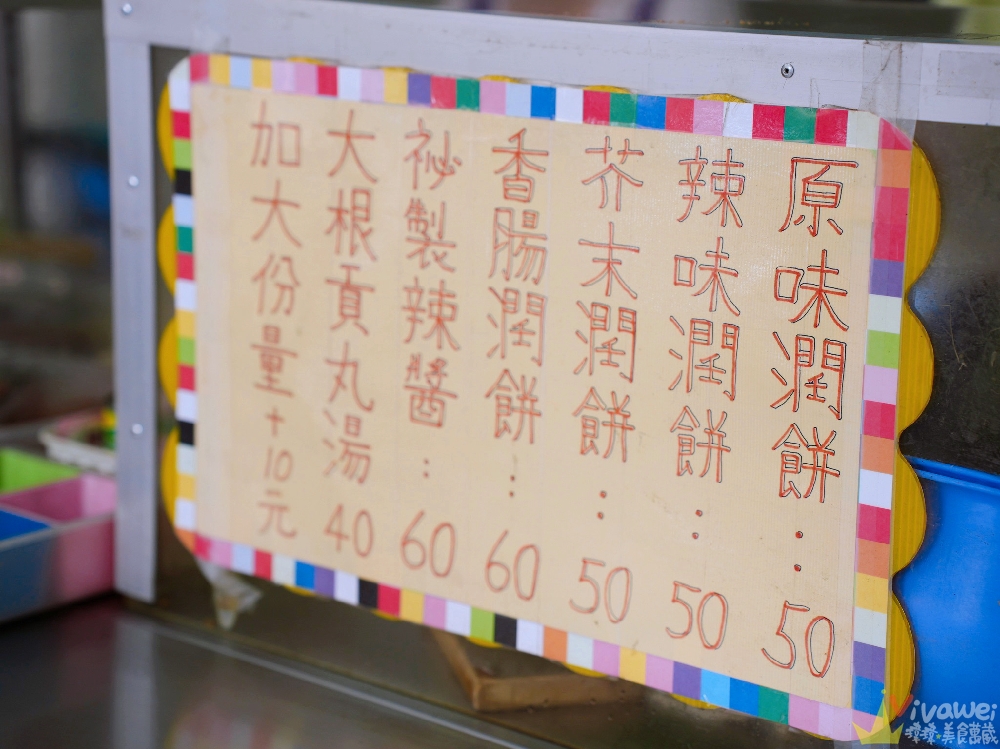 原味潤餅：50
辣味潤餅：50
芥末潤餅：50
香腸潤餅：60
祕製辣醬：60
大根貢丸湯40
加大份量+10元
ivawei